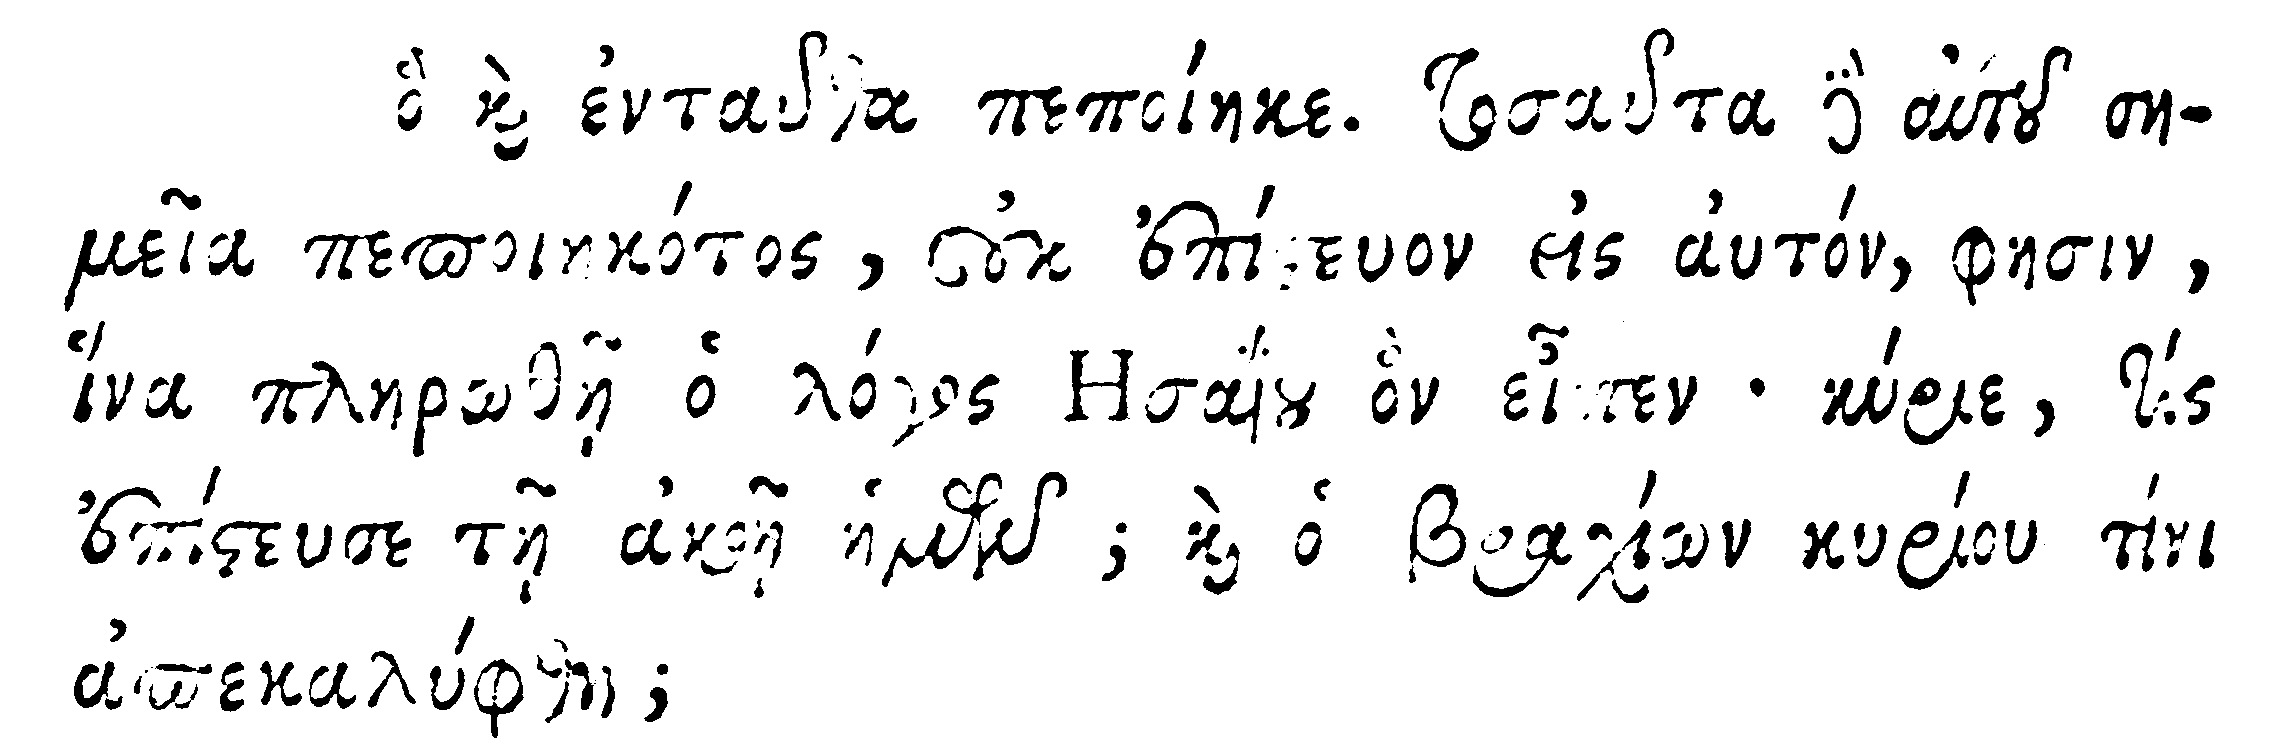 ὃ καὶ ἐνταῦθα πεποίηκε. Τοσαῦτα δὲ αὐτοῦ ση-
μεῖα πεποιηκότος, οὐκ ἐπίστευον εἰς ἀυτόν, φησιν,
ἵνα πληρωθῇ ὁ λόγος Ησαΐου ὃν εἶπεν · κύριε, τίς
ἐπίστευσε τῇ ἀκοῇ ἡμῶν; καὶ ὁ βραχίων κυρίου τίνι
ἀπεκαλύφθη;